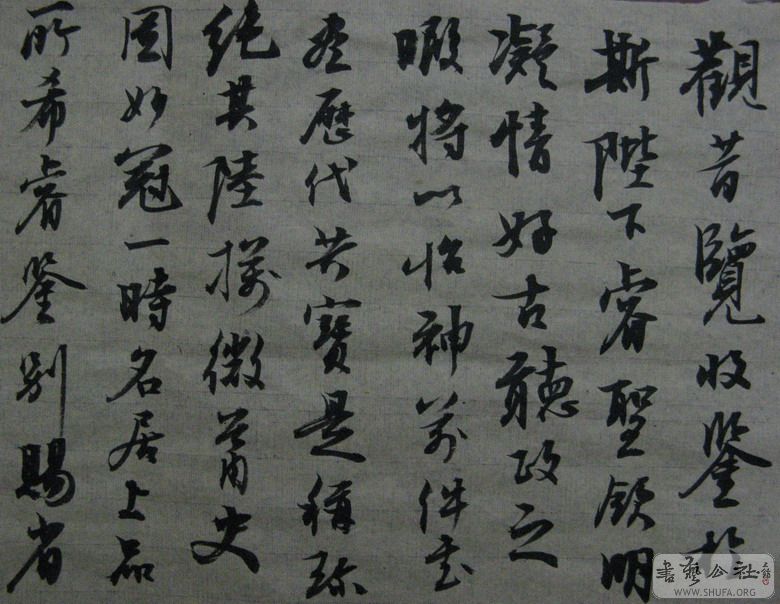 觀昔覽收鑒於
斯陛下睿聖欽明
凝情好古聽政之
暇將以怡神前件書
畫歷代共寶是稱珍
絕其陸探微蕭史
圖妙冠一時名居上品
所希睿鑒別賜省
書藝公社
WWW.SHUFA.ORG